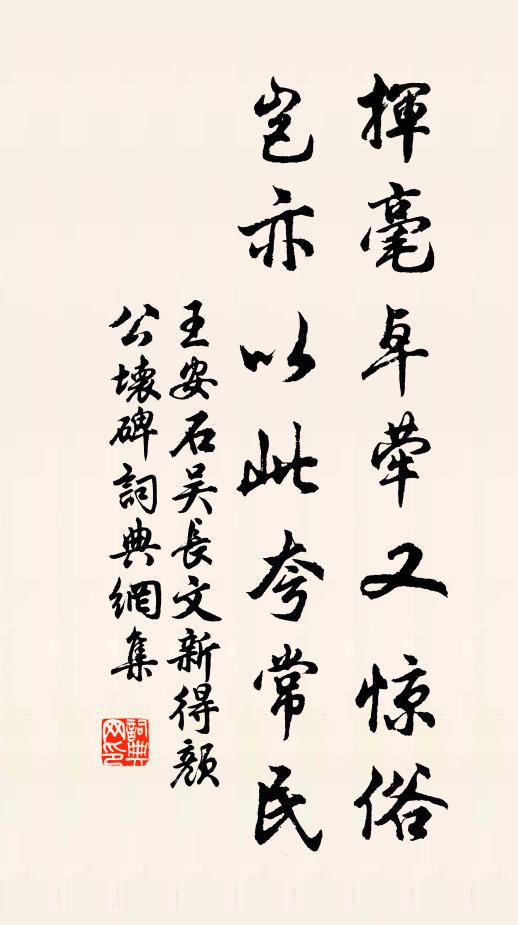 揮毫卓犖又惊俗
豈亦以此夸常民
王安石吴長文新得顔
公壊碑詞典網集
詞典网印